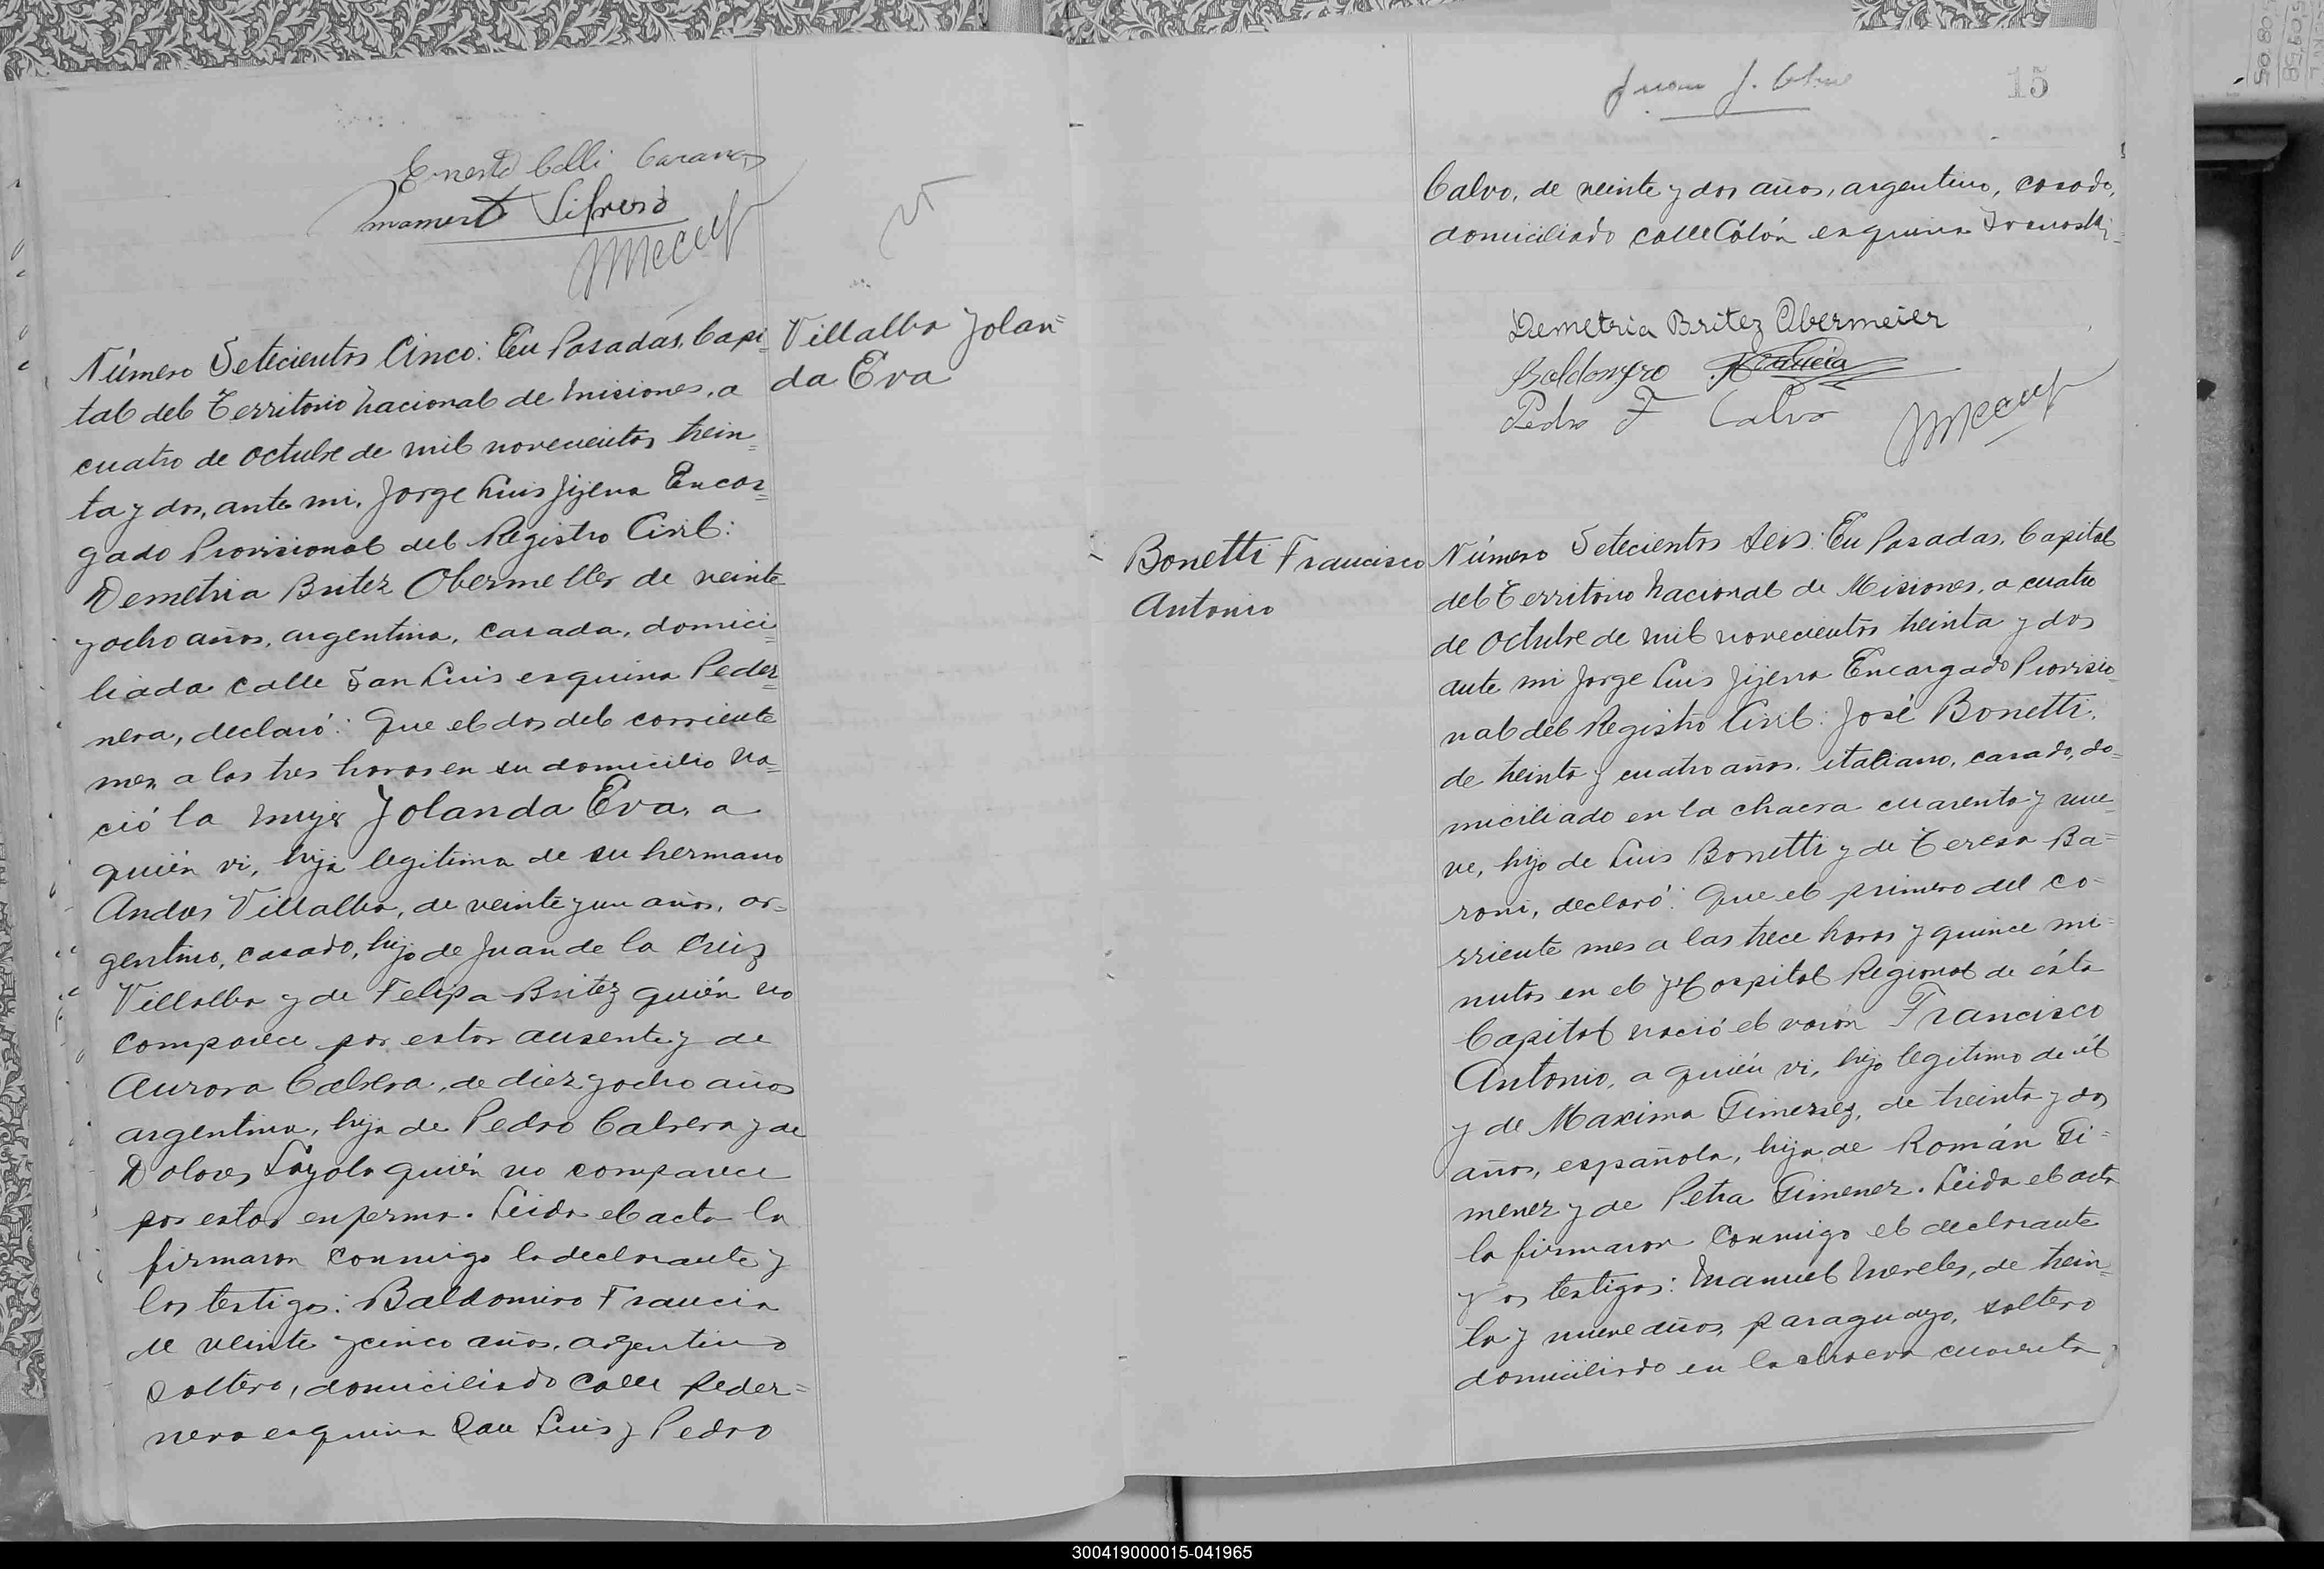 Ernesto Colli
Mamerto
Villalba Yolan=
da Eva
Número Setecientos Cinco: En Posadas, Capi=
tal del Territorio Nacional de Misiones, a
cuatro de octubre de mil novecientos trein=
ta y dos, ante mi, Jorge Luis Jijena Encar=
gado Provisional del Registro Civil:
Demetria Britez Obermeller de veinte
y ocho años, argentina, casada, domici=
liada calle San Luis esquina Peder=
nera, declaró: Que el dos del corriente
mes, a las tres horas en su domicilio na=
ció la mujer Yolanda Eva, a
quién vi, hija legitima de su hermano
Andres Villalba, de veinte y un años, ar=
gentino, casado, hijo de Juan de la Cruz
Villalba y de Felipa Britez quién no
comparece por estar ausente y de
Aurora Cabrera, de diez y ocho años
argentina, hija de Pedro Cabrera y de
Dolores Loyola quién no comparece
por estar enferma. Leida el acta la
firmaron conmigo la declarante y
los testigos: Baldomiro Francia
de veinte y cinco años, argentino
soltero, domiciliado calle Peder=
nera esquina San Luis y Pedro
Juan J.
15
Calvo, de veinte y dos años, argentino, casado,
domiciliado calle Cólón esquina
Demetria Britez Obermeier
Baldomero Francia
Pedro F Calvo
Bonetti Francisco
Antonio
Número Setecientos Seis: En Posadas, Capital
del Territorio Nacional de Misiones, a cuatro
de octubre de mil novecientos treinta y dos
ante mi Jorge Luis Jijena Encargado Provisio=
nal del Registro Civil: José Bonetti,
de treinta y cuatro años, italiano, casado, do=
miciliado en la chacra cuarenta y nue
ve, hijo de Luis Bonetti y de Teresa Ba=
roni, declaró: Que el primero del co=
rriente mes a las trece horas y quince mi=
nutos en el Hospital Regional de ésta
Capital nació el varón Francisco
Antonio, a quién vi, hijo legitimo de él
y de Maxima Gimenez, de treinta y dos
años, española, hija de Román Gi=
menez y de Petra Gimenez. Leida el acta
la firmaron conmigo el declarante
y os testigos: Manuel Mereles, de trein=
ta y nueve años, paraguayo, soltero
domiciliado en la chacra cuarenta
300419000015-041965